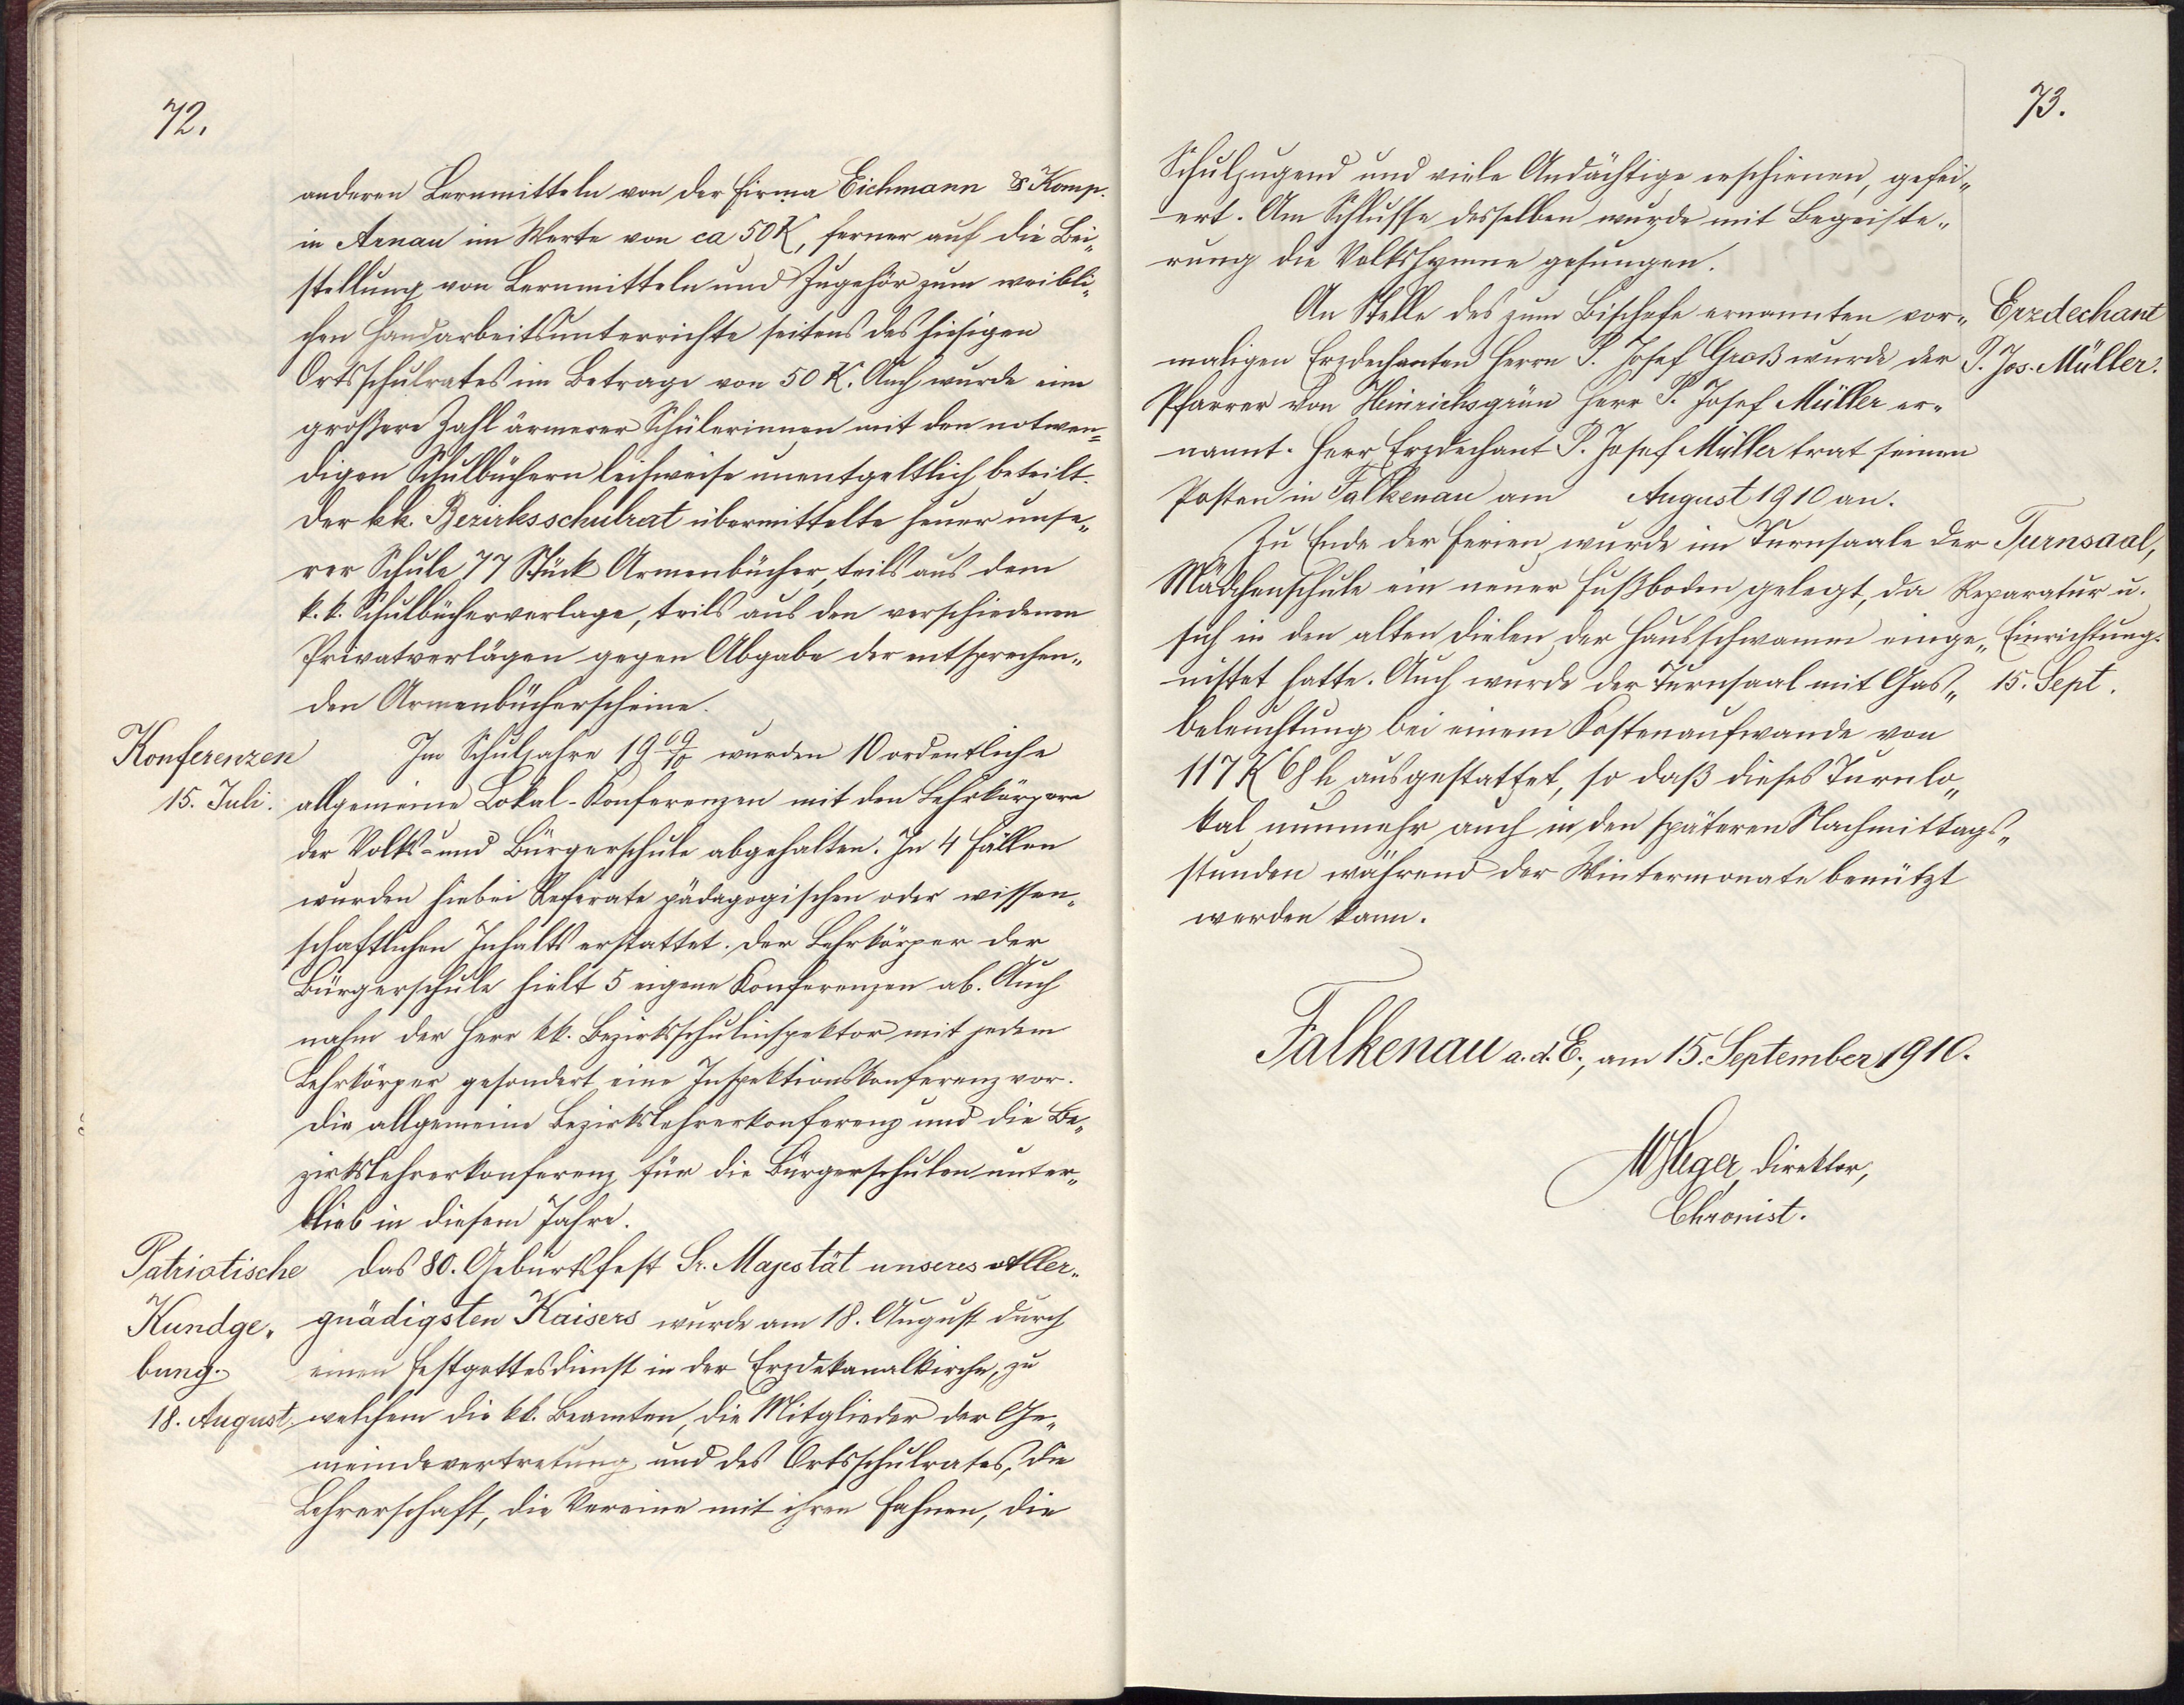 72.
anderen Lernmitteln von der Firma Eichmann & Komp.
in Arnau im Werte von ca 50 K, ferner auf die Bei„
stellung von Lernmitteln und Zugehör zum weibli„
chen Handarbeitsunterrichte seitens des hiesigen
Ortsschulrates im Betrage von 50 K. Auch wurde eine
größere Zahl ärmerer Schülerinnen mit den notwen„
digen Schulbüchern leihweise unentgeltlich beteilt.
Der kk. Bezirksschulrat übermittelte heuer unse„
rer Schule 77 Stück Armenbücher, teils aus dem
k. k. Schulbücherverlage, teils aus den verschiedenen
Privatverlägen gegen Abgabe der entsprechen„
den Armenbücherscheine.
Konferenzen
15. Juli.
Im Schuljahre 1909/10 wurden 10 ordentliche
allgemeine Lokal-Konferenzen mit den Lehrkörpern
der Volks- und Bürgerschule abgehalten. In 4 Fällen
wurden hiebei Referate pädagogischen oder wissen„
schaftlichen Inhalts erstattet. Der Lehrkörper der
Bürgerschule hielt 5 eigene Konferenzen ab. Auch
nahm der Herr kk. Bezirksschulinspektor mit jedem
Lehrkörper gesondert eine Inspektionskonferenz vor.
Die allgemeine Bezirkslehrerkonferenz und die Be„
zirkslehrerkonferenz für die Bürgerschulen unter„
blieb in diesem Jahre.
Patriotische
Kundge„
bung.
18. August.
Das 80. Geburtsfest Sr. Majestät unseres Aller„
gnädigsten Kaisers wurde am 18. August durch
einen Festgottesdienst in der Erzdekanalkirche, zu
welchem die kk. Beamten, die Mitglieder der Ge„
meindevertretung und des Ortsschulrates, die
Lehrerschaft, die Vereine mit ihren Fahnen, die
73.
Schuljugend und viele Andächtige erschienen, gefei„
ert. Am Schlusse desselben wurde mit Begeiste„
rung die Volkshymne gesungen.
An Stelle des zum Bischofe ernannten vor„
maligen Erzdechanten Herrn P. Josef Groß wurde der
Pfarrer von Heinrichsgrün Herr P. Josef Müller er„
nannt. Herr Erzdechant P. Josef Müller trat seinen
Posten in Falkenau am August 1910 an.
Erzdechant
P. Jos. Müller.
Zu Ende der Ferien wurde im Turnsaale der
Mädchenschule ein neuer Fußboden gelegt, da
sich in den alten Dielen der Hausschwamm einge„
nistet hatte. Auch wurde der Turnsaal mit Gas„
beleuchtung bei einem Kostenaufwande von
117 K 68 h ausgestattet, so daß dieses Turnlo„
kal nunmehr auch in den späteren Nachmittags„
stunden während der Wintermonate benützt
werden kann.
Turnsaal,
Reparatur u.
Einrichtung.
15. Sept.
Falkenau a. d. E., am 15. September 1910.
Direktor,
Chronist.